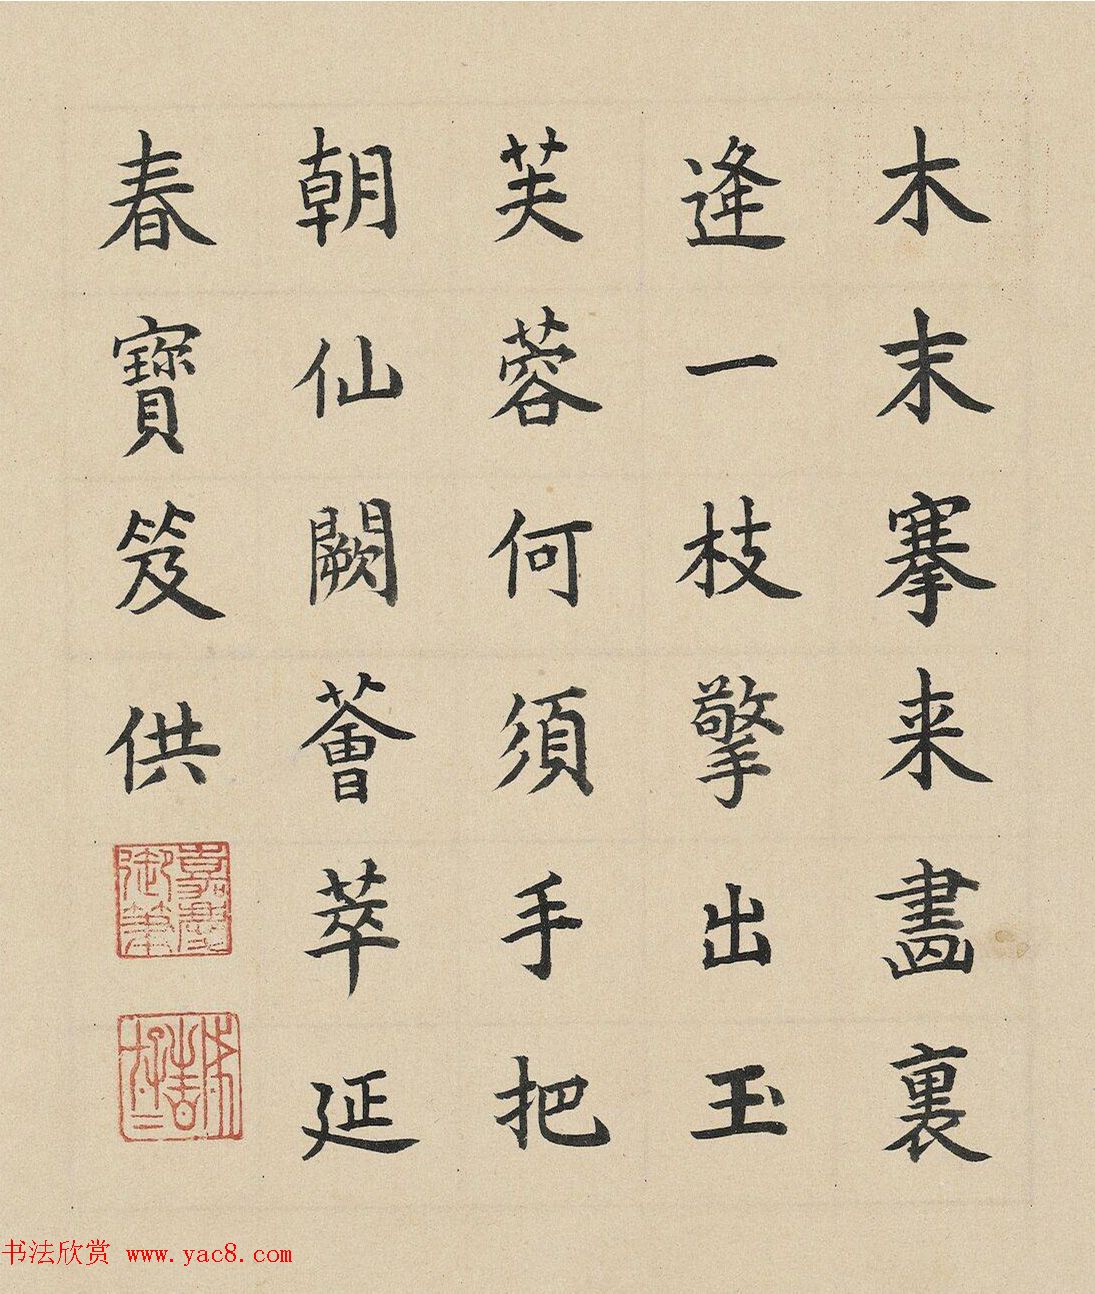 木末搴来畵裏
逢一枝擎出玉
芙蓉何須手把
朝仙闕薈萃延
春寶笈供
嘉慶
御筆
书法欣赏 www.yac8.com